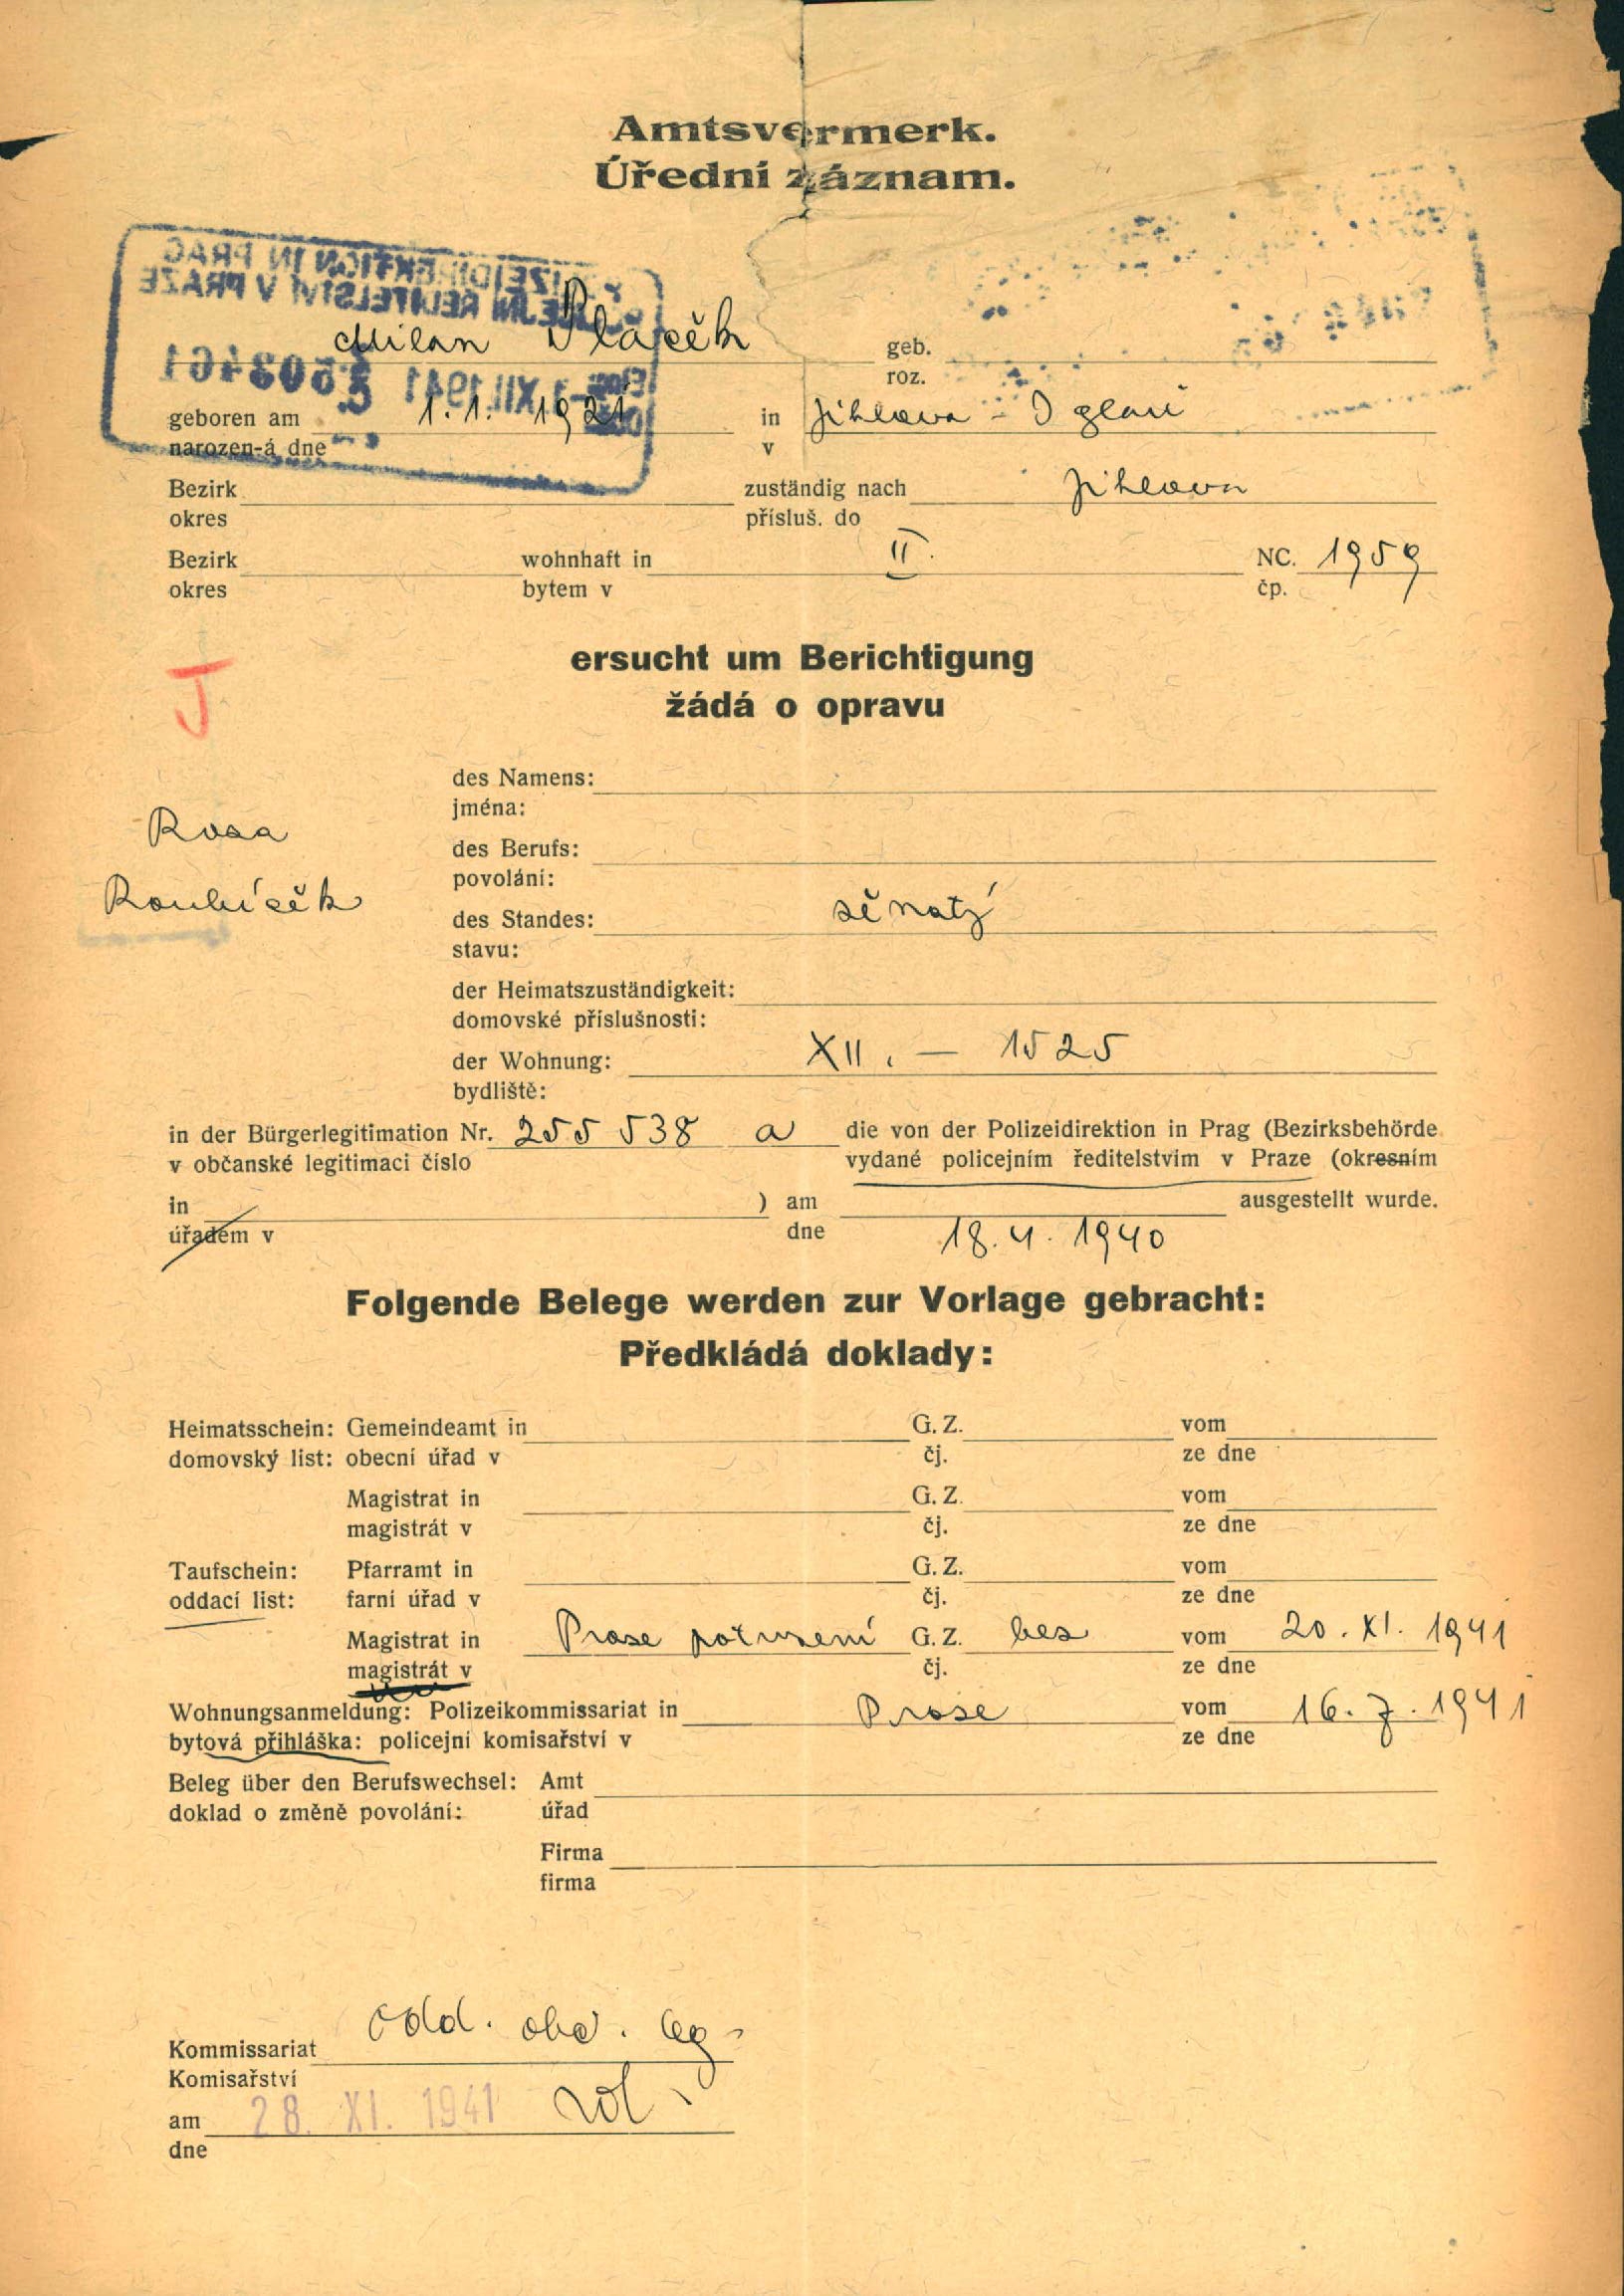 Amtsvermerk.
Úřední záznam.
POLIZEIDIREKTION IN PRAG
POLICEJNÍ ŘEDITELSTVÍ V PRAZE
Milan Plaček geb.
roz.
XII. 1941
geboren am 1. 1. 1921 in Jihlava - Iglau
narozen-á dne v
Bezirk zuständig nach Jihlava
okres přísluš. do
Bezirk wohnhaft in II. NC. 1959
okres bytem v čp.
ersucht um Berichtigung
J
žádá o opravu
des Namens:
jména:
Rosa
des Berufs:
povolání:
Roubíček
des Standes: ženatý
stavu:
der Heimatszuständigkeit:
domovské příslušnosti:
der Wohnung: XII. — 1525
bydliště:
in der Bürgerlegitimation Nr. 255 538 a die von der Polizeidirektion in Prag (Bezirksbehörde
v občanské legitimaci číslo vydané policejním ředitelstvím v Praze (okresním
in ) am ausgestellt wurde.
úřadem v dne 18. 4. 1940
Folgende Belege werden zur Vorlage gebracht:
Předkládá doklady:
Heimatsschein: Gemeindeamt in G. Z. vom
domovský list: obecní úřad v čj. ze dne
Magistrat in G. Z. vom
magistrát v čj. ze dne
Taufschein: Pfarramt in G. Z. vom
oddací list: farní úřad v čj. ze dne
Magistrat in Praze potvrzení G. Z. bez vom 20. XI. 1941
magistrát v čj. ze dne
Wohnungsanmeldung: Polizeikommissariat in Praze vom 16. 7. 1941
bytová přihláška: policejní komisařství v ze dne
Beleg über den Berufswechsel: Amt
doklad o změně povolání: úřad
Firma
firma
Kommissariat odd. obč. leg.
Komisařství
am 28. XI. 1941
dne